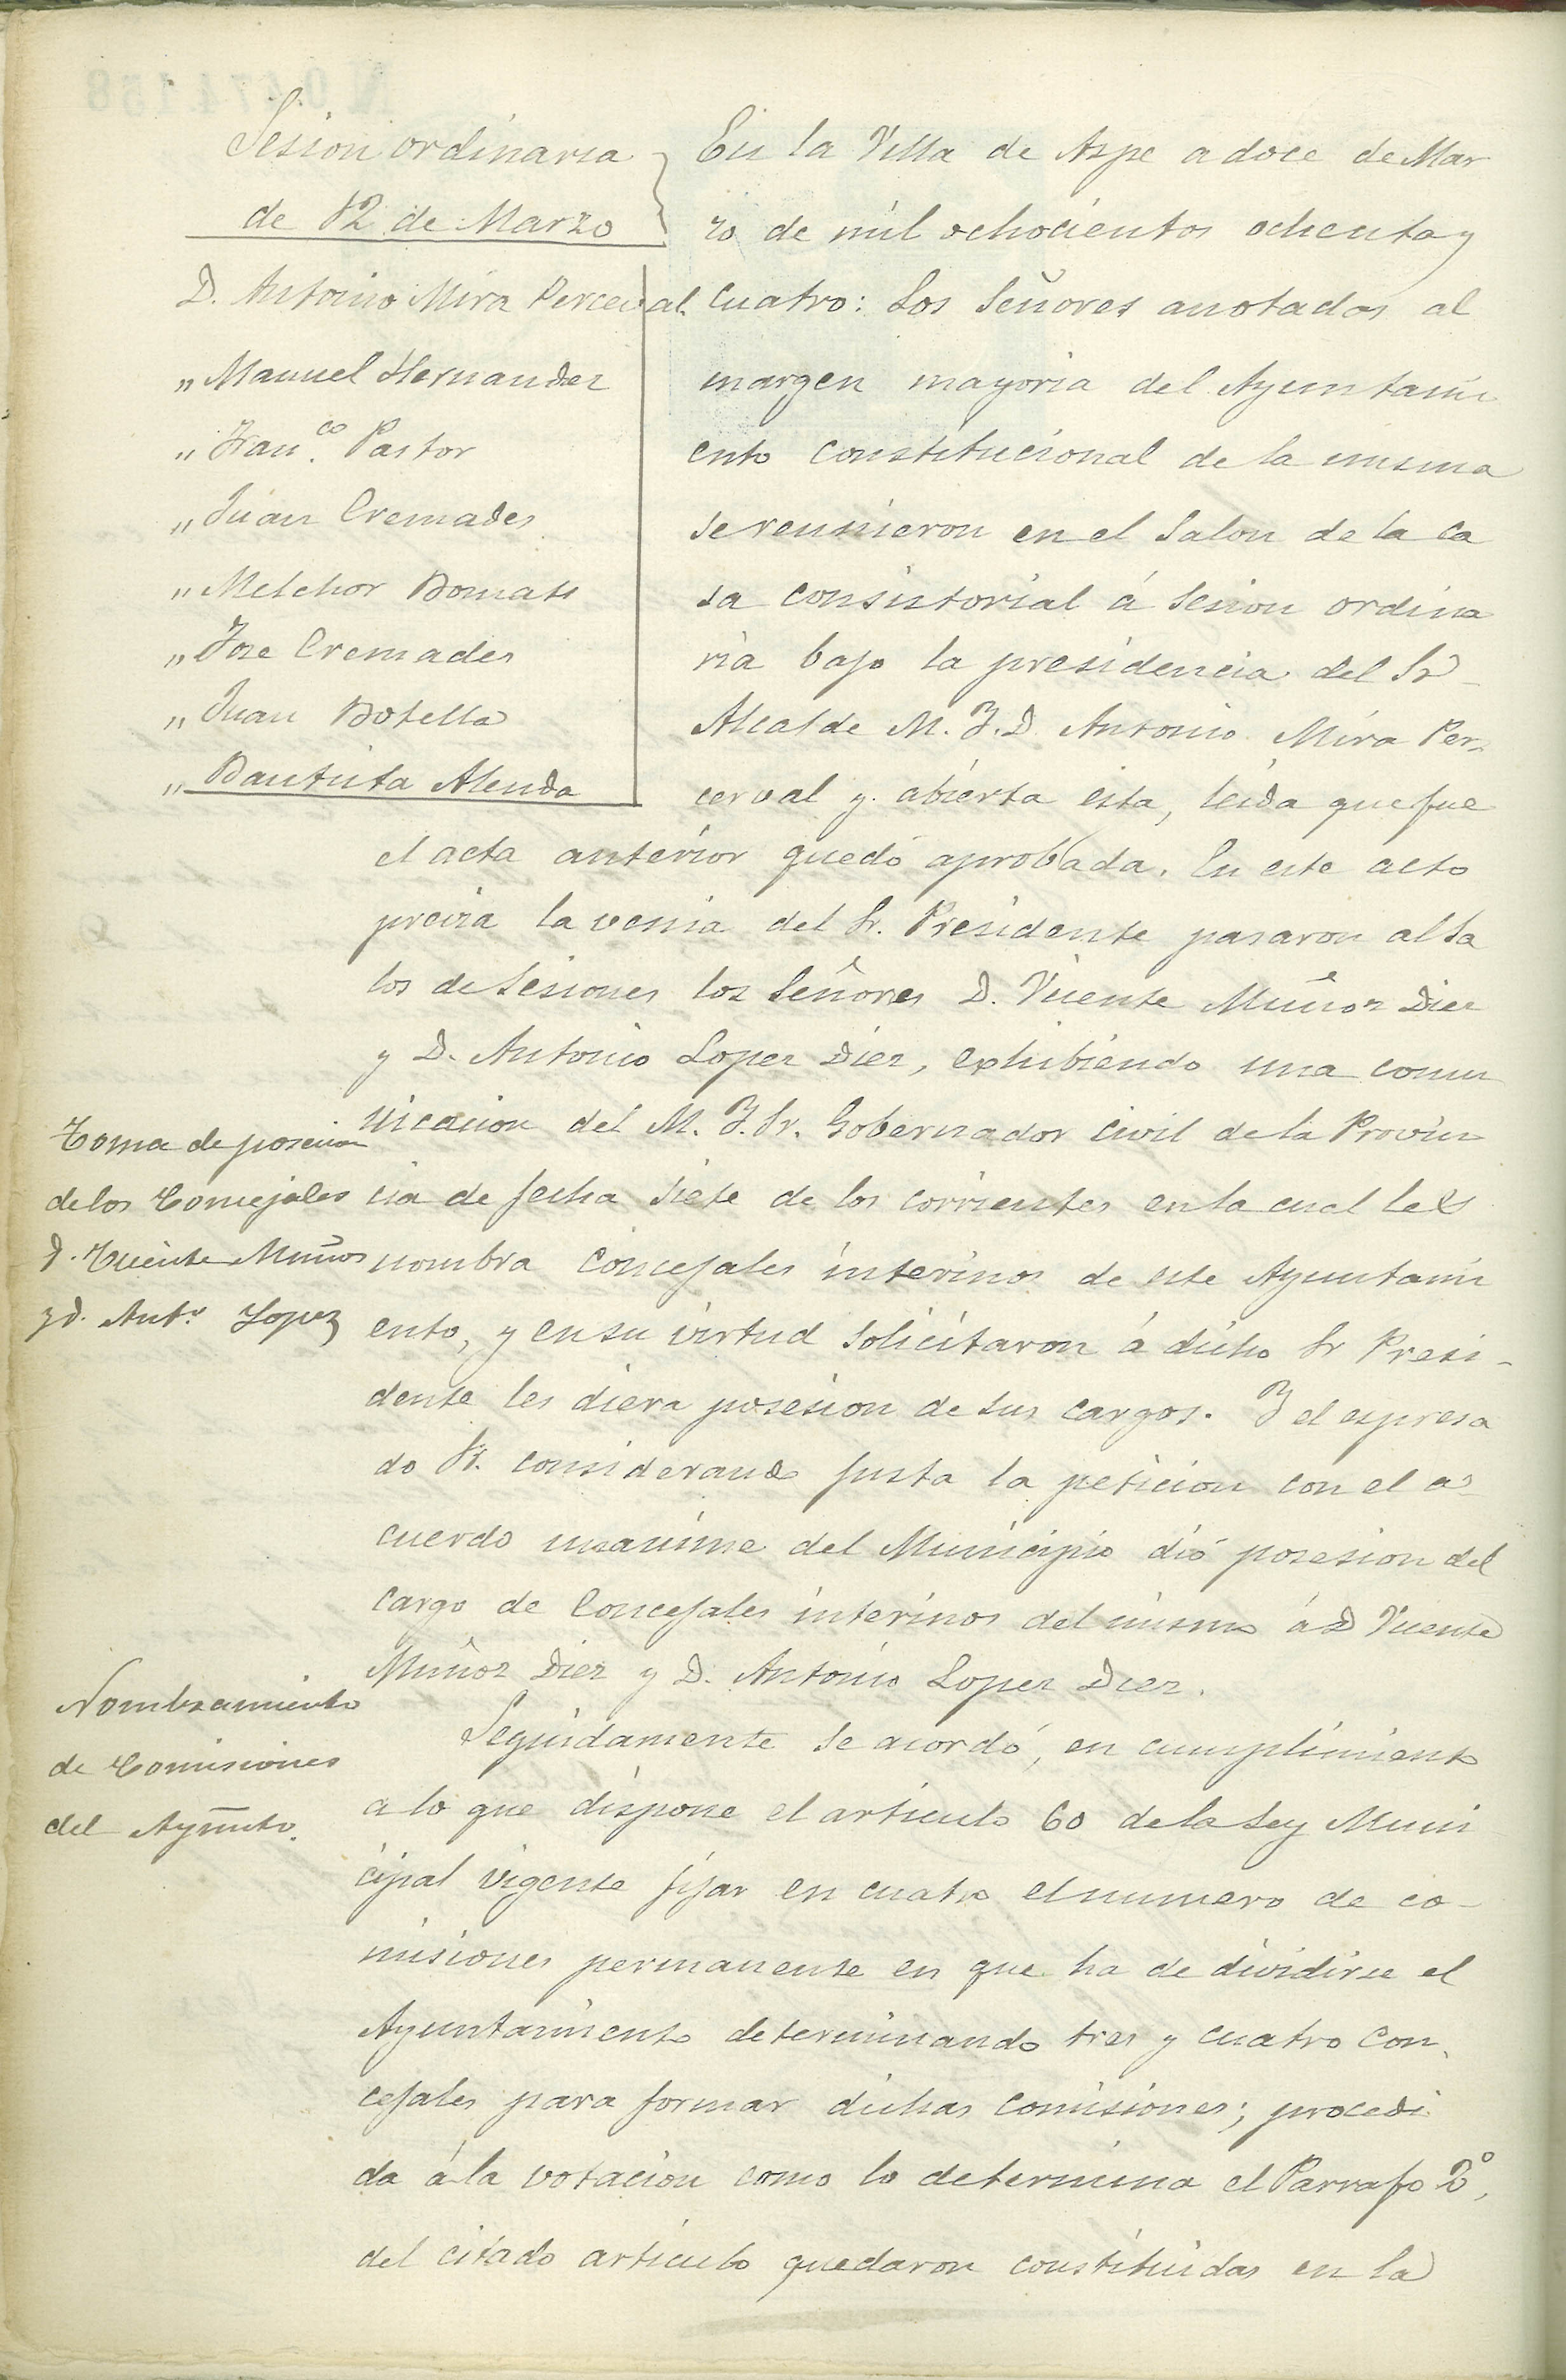 Sesion ordinaria
de 12 de Marzo
D. Antonio Mira Perceval
„ Manuel Hernandez
„ Fran.co Pastor
„ Juan Cremades
„ Melchor Bomati
„ Jose Cremades
„ Juan Botella
„ Bautista Alenda
En la Villa de Aspe a doce de Mar
zo de mil ochocientos ochenta y
cuatro: Los Señores anotados al
margen mayoria del Ayuntami
ento constitucional de la misma
se reunieron en el Salon de la ca
sa consistorial á sesion ordina
ria bajo la presidencia del Sr
Alcalde M. Y. D. Antonio Mira Per-
cerval y abierta esta, leida que fue
el acta anterior quedó aprobada. En este acto
previa la venia del Sr. Presidente pasaron al Sa
los de Sesiones los Señores D. Vicente Muñoz Diez
y D. Antonio Lopez Diez, exhibiendo una comu
nicacion del M. Y. Sr. Gobernador civil de la Provin
cia de fecha siete de los corrientes en la cual les
nombra concejales interinos de este Ayuntami
ento, y en su virtud solicitaron á dicho Sr Presi-
dente les diera posesion de sus cargos. Y el espresa
do Sr. considerando justa la peticion con el a-
cuerdo unanime del Municipio dió posesion del
cargo de Concejales interinos del mismo á D Vicente
Muñoz Diez y D. Antonio Lopez Diez.
Toma de posesion
de los Concejales
D. Vicente Muñoz
y D. Ant.o Lopez
Seguidamente se acordó, en cumplimiento
a lo que dispone el articulo 60 de la Ley Muni
cipal vigente fijar en cuatro el numero de co-
misiones permanente en que ha de dividirse el
Ayuntamiento determinando tres y cuatro con-
cejales para formar dichas comisiones; procedi
da á la votacion como lo determina el Parrafo 2º,
del citado articulo quedaron constituidas en la
Nombramiento
de Comisiones
del Ayunto.